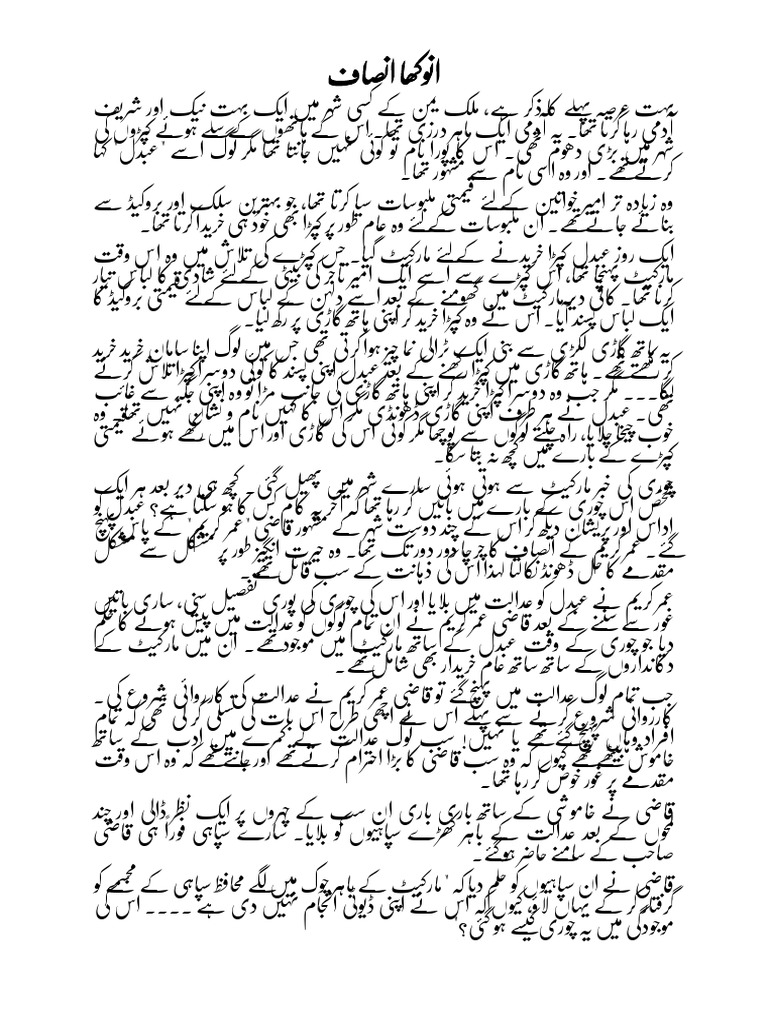 انوکھا انصاف
بہت عرصہ پہلے کا ذکر ہے، ملک یمن کے کسی شہر میں ایک بہت نیک اور شریف
آدمی رہا کرتا تھا۔ یہ آدمی ایک ماہر درزی تھا۔ اس کے ہاتھوں کے سلے ہوئے کپڑوں کی
شہر میں بڑی دھوم تھی۔ اس کا پورا نام تو کوئی نہیں جانتا تھا مگر لوگ اسے 'عبدل' کہا
کرتے تھے۔ اور وہ اسی نام سے مشہور تھا۔
وہ زیادہ تر امیر خواتین کے لئے قیمتی ملبوسات سیا کرتا تھا، جو بہترین سلک اور بروکیڈ سے
بنائے جاتے تھے۔ ان ملبوسات کے لئے وہ عام طور پر کپڑا بھی خود ہی خریدا کرتا تھا۔
ایک روز عبدل کپڑا خریدنے کے لئے مارکیٹ گیا۔ جس کپڑے کی تلاش میں وہ اس وقت
مارکیٹ پہنچا تھا، اس کپڑے سے اسے ایک امیر تاجر کی بیٹی کے لئے شادی کا لباس تیار
کرنا تھا۔ کافی دیر مارکیٹ میں گھومنے کے بعد اسے دلہن کے لباس کے لئے قیمتی بروکیڈ کا
ایک لباس پسند آیا۔ اس نے وہ کپڑا خرید کر اپنی ہاتھ گاڑی پر رکھ لیا۔
یہ ہاتھ گاڑی لکڑی سے بنی ایک ٹرالی نما چیز ہوا کرتی تھی جس میں لوگ اپنا سامان خرید خرید
کر رکھتے تھے۔ ہاتھ گاڑی میں کپڑا رکھنے کے بعد عبدل اپنی پسند کا کوئی دوسرا کپڑا تلاش کرنے
لگا۔۔۔۔ مگر جب وہ دوسرا کپڑا خرید کر اپنی ہاتھ گاڑی کی جانب مڑا تو وہ اپنی جگہ سے غائب
تھی۔ عبدل نے ہر طرف اپنی گاڑی ڈھونڈی مگر اس کا کہیں نام و نشان نہیں تھا۔ وہ
خوب چیخا چلایا، راہ چلتے لوگوں سے پوچھا مگر کوئی اس کی گاڑی اور اس میں رکھے ہوئے قیمتی
کپڑے کے بارے میں کچھ نہ بتا سکا۔
چوری کی خبر مارکیٹ سے ہوتی ہوئی سارے شہر میں پھیل گئی۔ کچھ ہی دیر بعد ہر ایک
شخص اس چوری کے بارے میں باتیں کر رہا تھا کہ آخر یہ کام کس کا ہو سکتا ہے؟ عبدل کو
اداس اور پریشان دیکھ کر اس کے چند دوست شہر کے مشہور قاضی 'عمر کریم' کے پاس پہنچ
گئے۔ عمر کریم کے انصاف کا چرچا دور دور تک تھا۔ وہ حیرت انگیز طور پر مشکل سے مشکل
مقدمے کا حل ڈھونڈ نکالتا لہذا اس کی ذہانت کے سب قائل تھے۔
عمر کریم نے عبدل کو عدالت میں بلایا اور اس کی چوری کی پوری تفصیل سنی، ساری باتیں
غور سے سننے کے بعد قاضی عمر کریم نے ان تمام لوگوں کو عدالت میں پیش ہونے کا حکم
دیا جو چوری کے وقت عبدل کے ساتھ مارکیٹ میں موجود تھے۔ ان میں مارکیٹ کے
دکانداروں کے ساتھ ساتھ عام خریدار بھی شامل تھے۔
جب تمام لوگ عدالت میں پہنچ گئے تو قاضی عمر کریم نے عدالت کی کارروائی شروع کی۔
کارروائی شروع کرنے سے پہلے اس نے اچھی طرح اس بات کی تسلی کر لی تھی کہ تمام
افراد وہاں پہنچ گئے تھے یا نہیں! سب لوگ عدالت کے کمرے میں ادب کے ساتھ
خاموش بیٹھے تھے کیوں کہ وہ سب قاضی کا بڑا احترام کرتے تھے اور جانتے تھے کہ وہ اس وقت
مقدمے پر غور خوض کر رہا تھا۔
قاضی نے خاموشی کے ساتھ باری باری ان سب کے چہروں پر ایک نظر ڈالی اور چند
لمحوں کے بعد عدالت کے باہر کھڑے سپاہیوں کو بلایا۔ سارے سپاہی فوراً ہی قاضی
صاحب کے سامنے حاضر ہوگئے۔
قاضی نے ان سپاہیوں کو حکم دیا کہ 'مارکیٹ کے باہر چوک میں لگے محافظ سپاہی کے مجسمے کو
گرفتار کر کے یہاں لاؤ کیوں کہ اس نے اپنی ڈیوٹی انجام نہیں دی ہے ۔۔۔۔ اس کی
موجودگی میں یہ چوری کیسے ہو گئی؟'